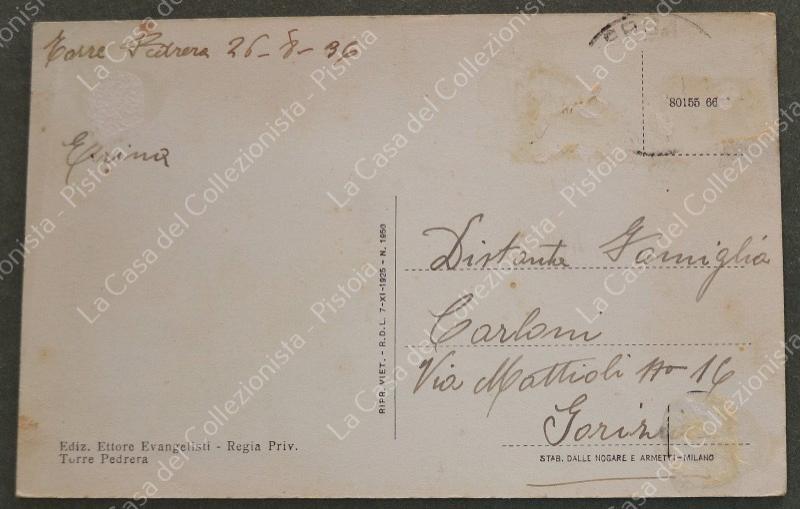 Torre Pedrera 26-8-36
80155 66
Erina
Distanta Famiglia
Carloni
Via Mattioli No 16
RIPR. VIET. - R.D.L. 7-XI-1925 - N. 1950
Ediz. Ettore Evangelisti - Regia Priv.
Torre Pedrera
STAB. DALLE NOGARE E ARMETTI-MILANO
La Casa del Collezionista - Pistoia